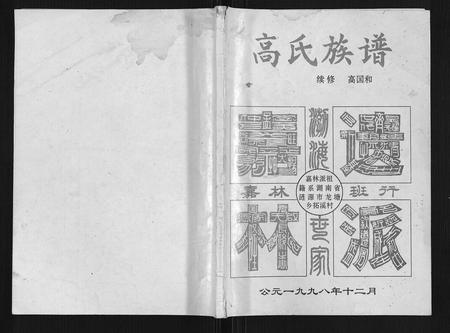 高氏族谱
续修 高国和
嘉 渤海 遗
嘉林 班行
嘉林派祖
籍系湖南省
涟源市龙塘
乡拓溪村
林 世家 派
公元一九九八年十二月